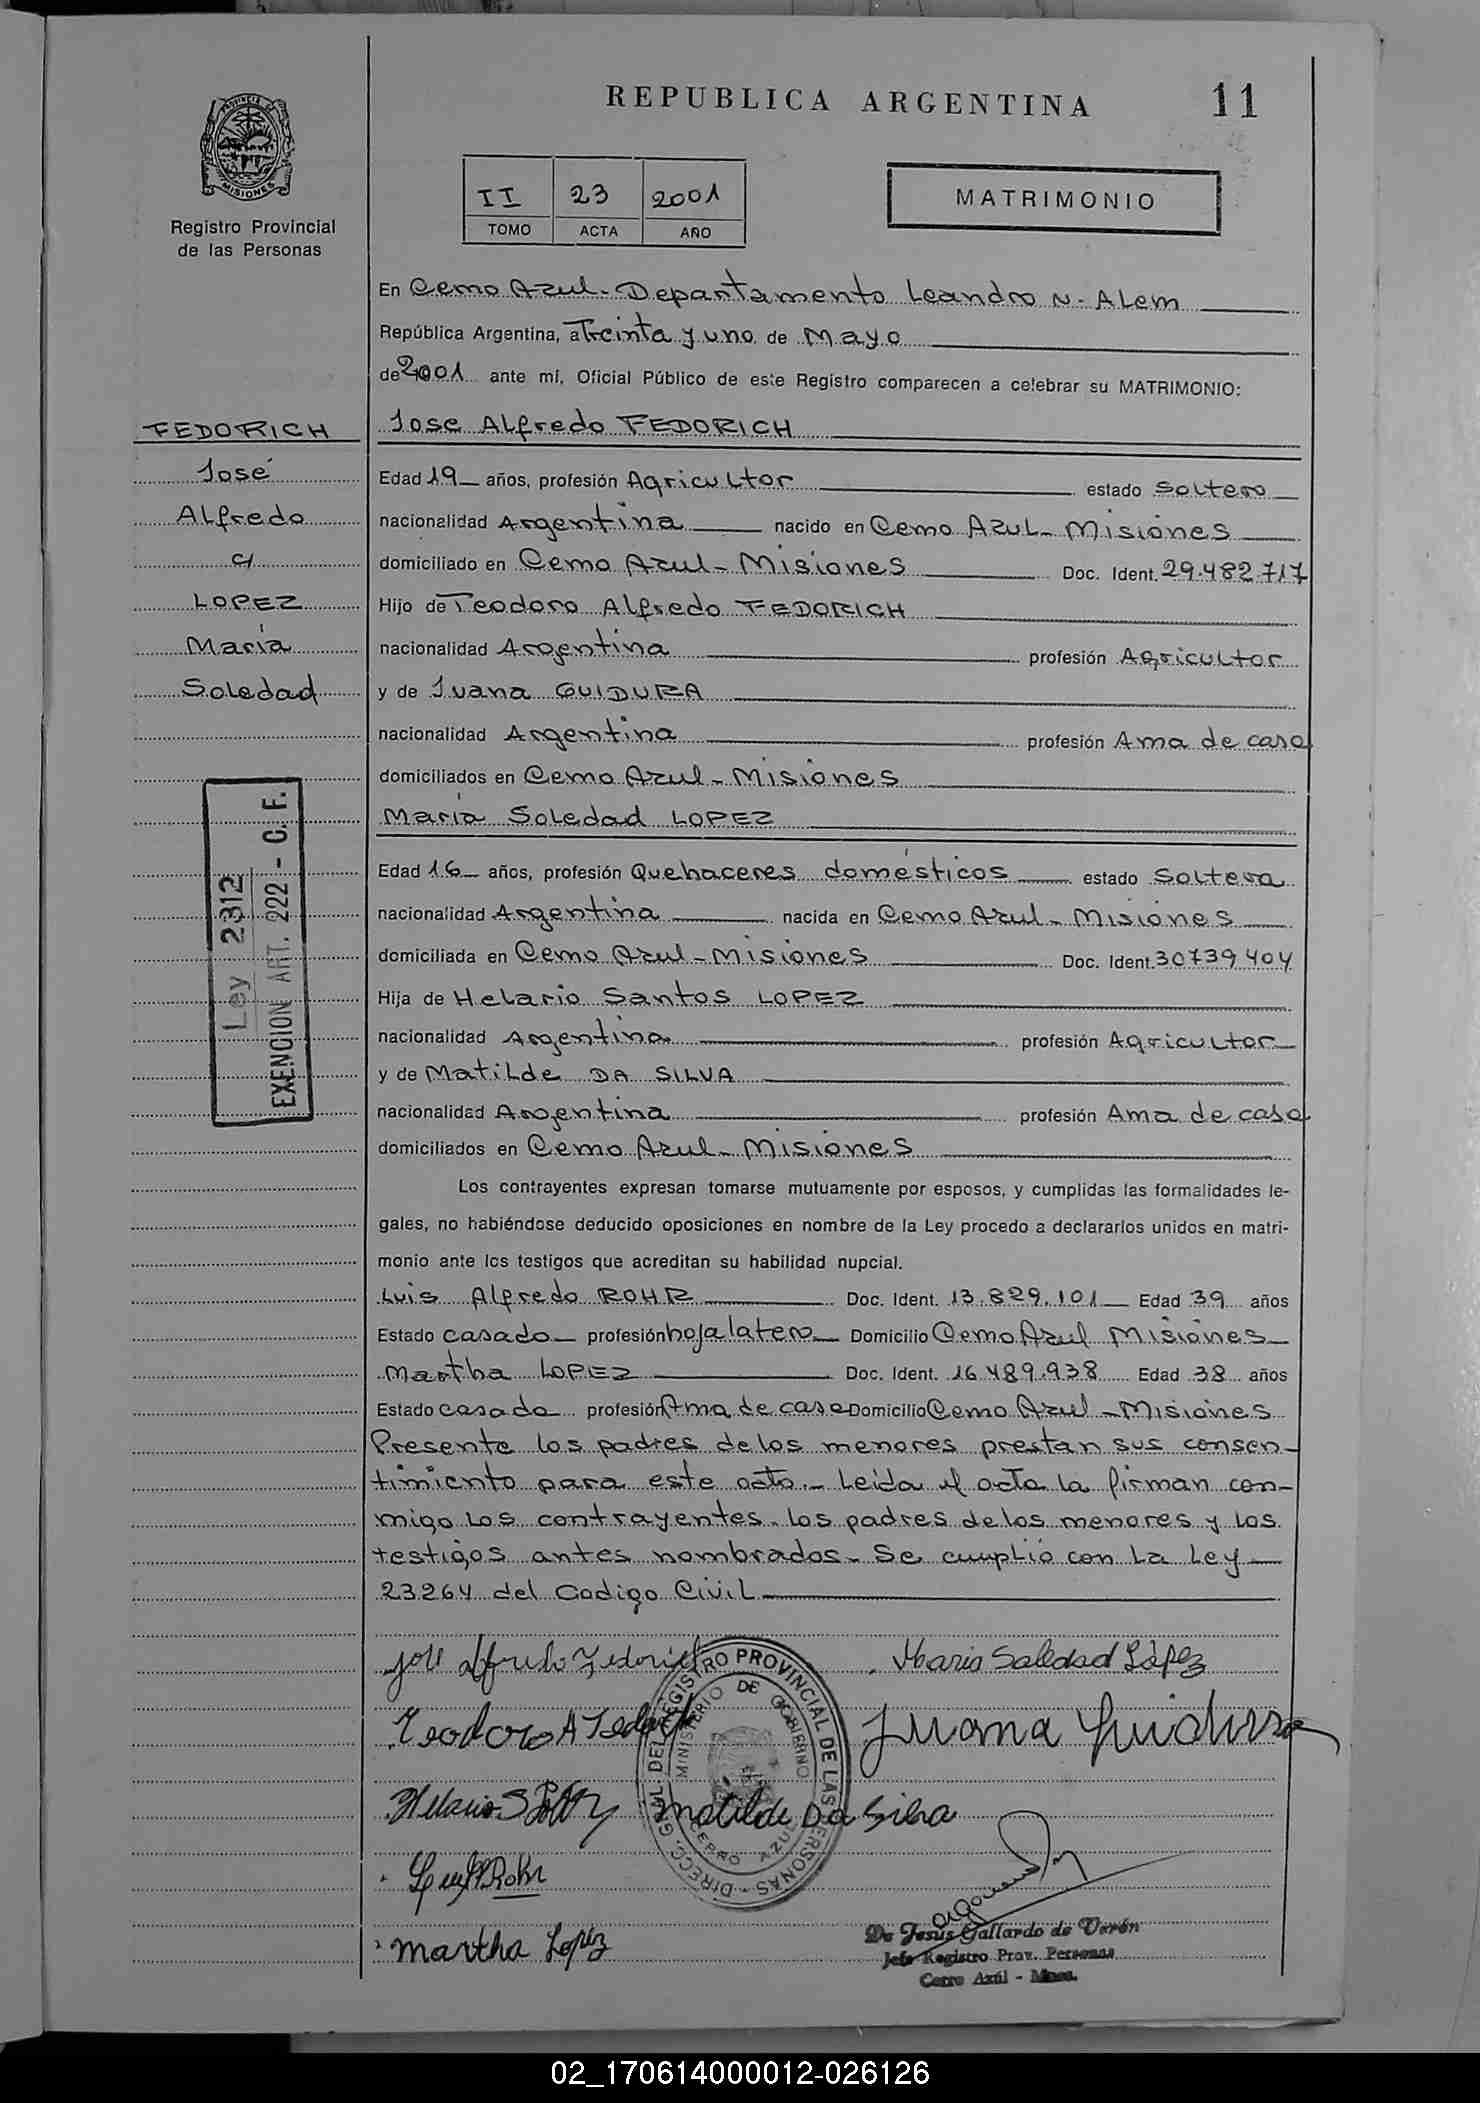 REPUBLICA ARGENTINA 11
PROVINCIA DE
MISIONES
Registro Provincial
de las Personas
II 23 2001
TOMO ACTA AÑO
MATRIMONIO
En Cerro Azul - Departamento Leandro N. Alem
República Argentina, a Treinta y uno de Mayo
de 2001 ante mí, Oficial Público de este Registro comparecen a celebrar su MATRIMONIO:
FEDORICH
José
Alfredo
c/
LOPEZ
María
Soledad
Ley 2312
EXENCION ART. 222 - C. F.
Jose Alfredo FEDORICH
Edad 19 años, profesión Agricultor estado Soltero
nacionalidad Argentina nacido en Cerro Azul - Misiones
domiciliado en Cerro Azul - Misiones Doc. Ident. 29.482.717
Hijo de Teodoro Alfredo FEDORICH
nacionalidad Argentina profesión Agricultor
y de Juana GUIDURA
nacionalidad Argentina profesión Ama de casa
domiciliados en Cerro Azul - Misiones
María Soledad LOPEZ
Edad 16 años, profesión Quehaceres domésticos estado Soltera
nacionalidad Argentina nacida en Cerro Azul - Misiones
domiciliada en Cerro Azul - Misiones Doc. Ident. 30739404
Hija de Helario Santos LOPEZ
nacionalidad Argentina profesión Agricultor
y de Matilde DA SILVA
nacionalidad Argentina profesión Ama de casa
domiciliados en Cerro Azul - Misiones
Los contrayentes expresan tomarse mutuamente por esposos, y cumplidas las formalidades le-
gales, no habiéndose deducido oposiciones en nombre de la Ley procedo a declararlos unidos en matri-
monio ante los testigos que acreditan su habilidad nupcial.
Luis Alfredo ROHR Doc. Ident. 13.829.101 Edad 39 años
Estado casado profesión hojalatero Domicilio Cerro Azul Misiones
Martha LOPEZ Doc. Ident. 16.489.938 Edad 38 años
Estado casada profesión Ama de casa Domicilio Cerro Azul - Misiones
Presente los padres de los menores prestan sus consen-
timiento para este acto.- Leída el acta la firman con-
migo los contrayentes. los padres de los menores y los
testigos antes nombrados. Se cumplió con la Ley
23264 del Codigo Civil
José Alfredo Fedorich María Soledad López
Teodoro A Fedorich Juana Guidura
Helario S Matilde Da Silva
Luis A Rohr
Martha Lopéz
DIRECC. GRAL. DEL REGISTRO PROVINCIAL DE LAS PERSONAS
MINISTERIO DE GOBIERNO
CERRO AZUL
De Jesús Gallardo de Verón
Jefe Registro Prov. Personas
Cerro Azúl - Mnes.
02_170614000012-026126